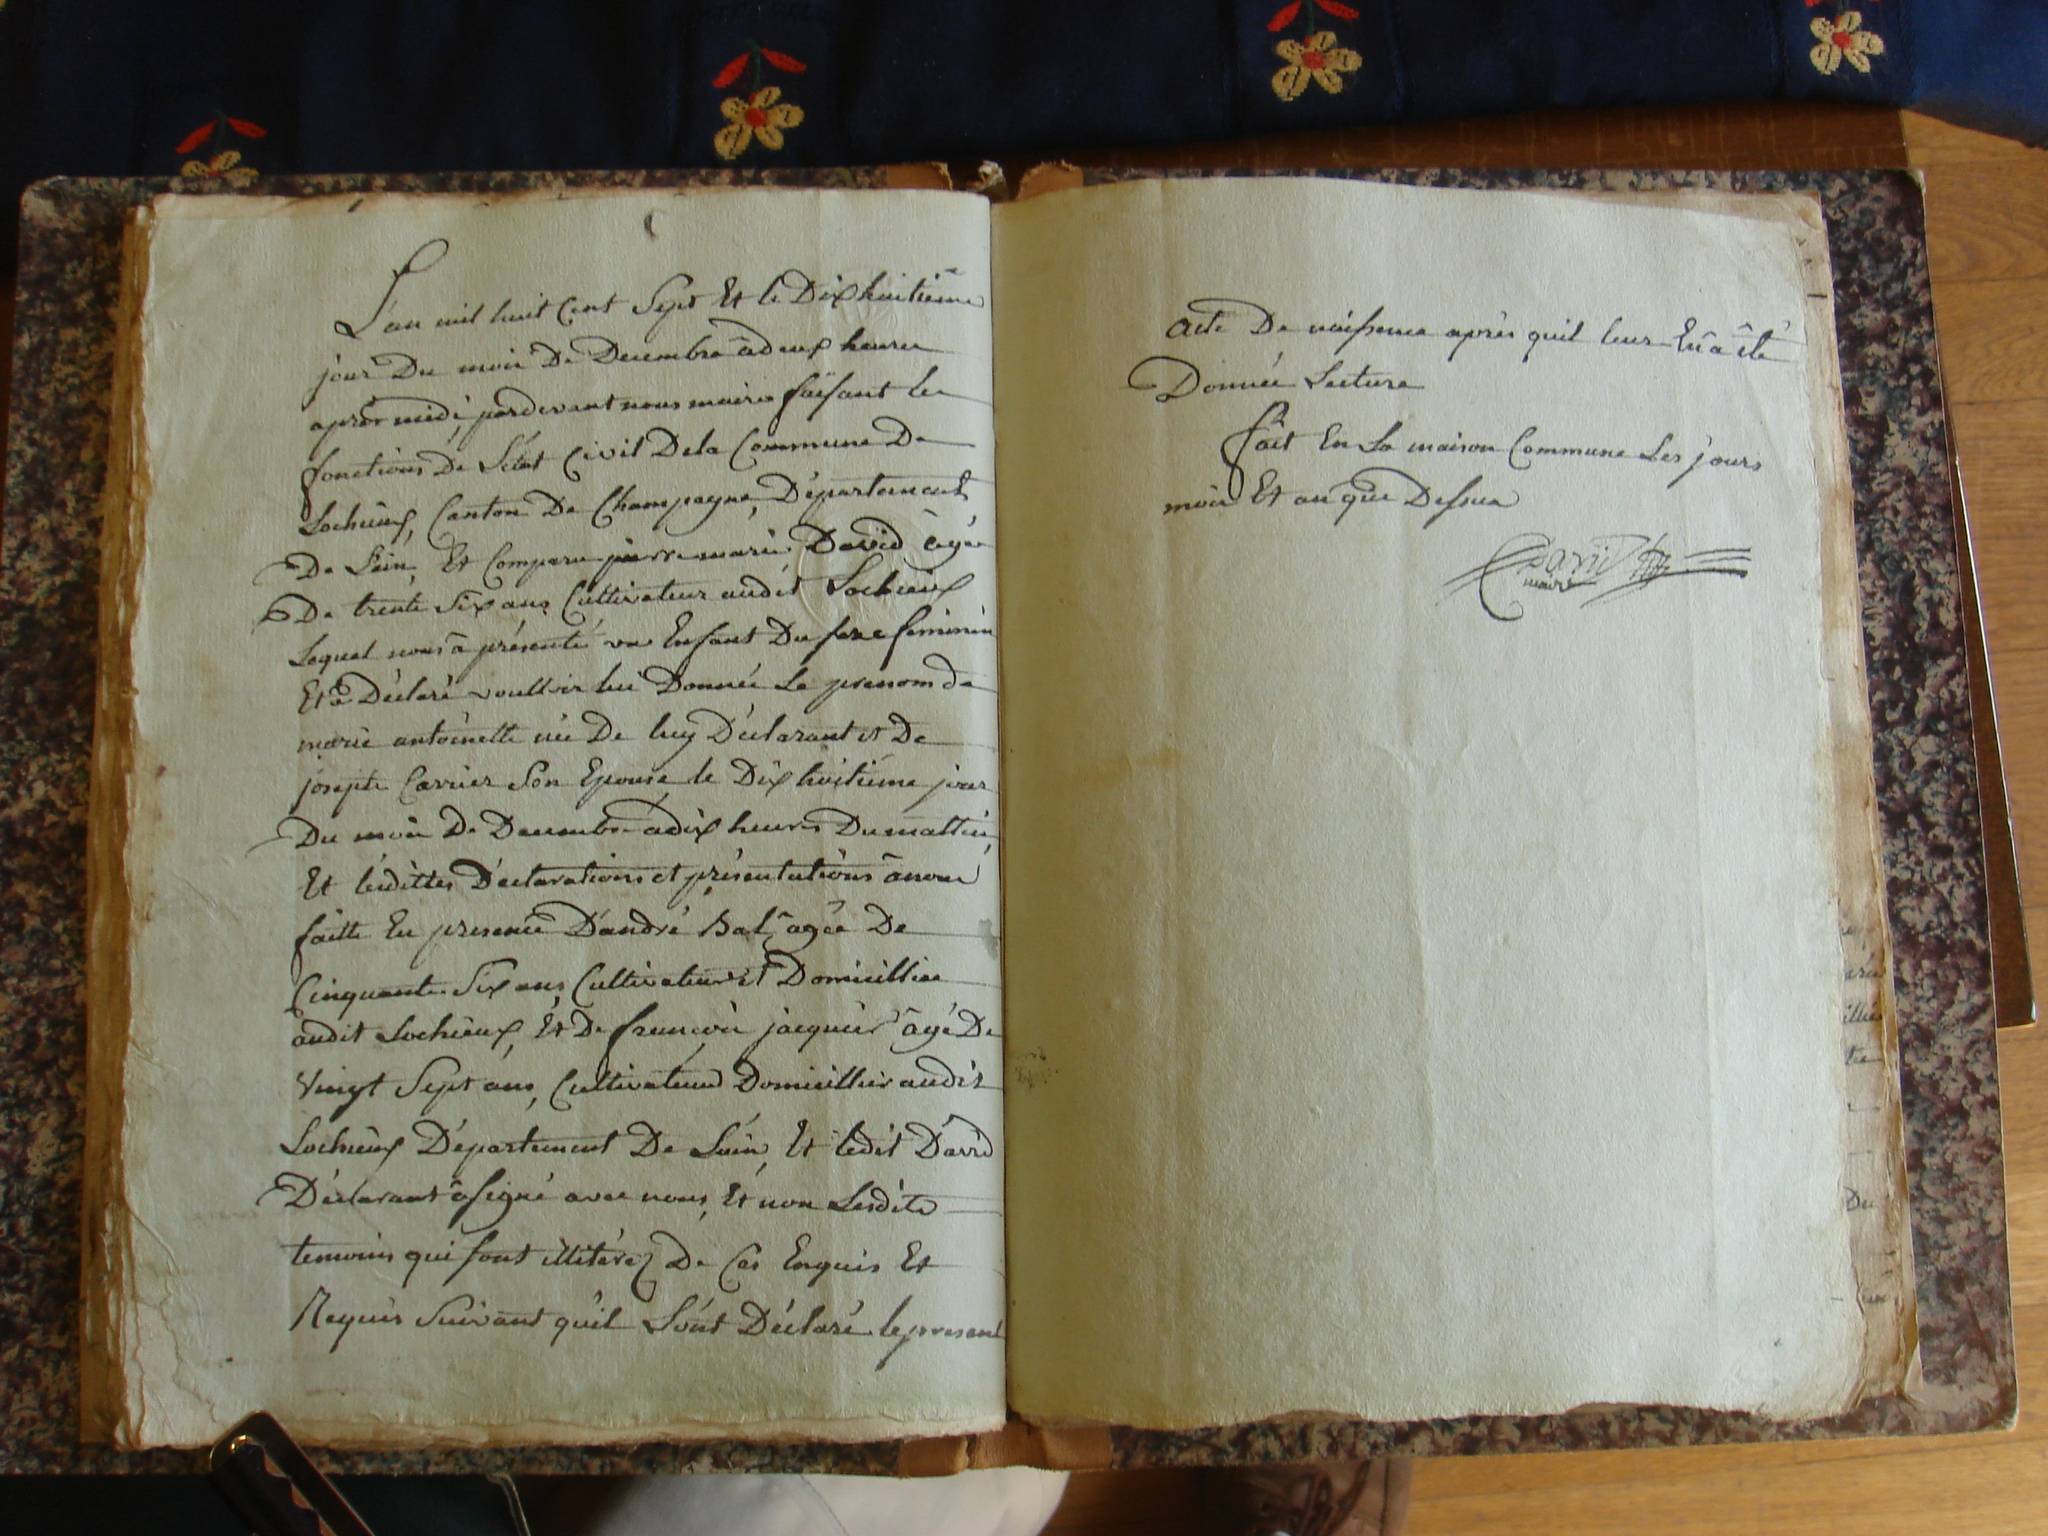 L'an mil huit Cent Sept Et le Dix huitième
jour Du mois De Decembre à deux heures
après midi, pardevant nous maire faisant les
fonctions De L'état Civil De la Commune De
Lochieux, Canton De Champagne, Département
De Lain, Et Comparu pierre marie David âgée
De trente Six ans Cultivateur audit Lochieux
Lequel nous à présenté un Enfant Du sexe feminin
Et à Déclaré voulloir lui Donnée Le prenom de
marie antoinette née De luy Déclarant et De
josepte Carrier Son Epouse le Dix huitième jour
Du mois De Decembre à dix heures Du mattin,
Et lesdittes Déclarations et présentations à nous
faitte En presence D'andré Bal, agée De
Cinquante Six ans Cultivateur et Domicilliee
audit Lochieux, Et De françois jacquier âgé De
Vingt Sept ans, Cultivateur Domicillier audit
Lochieux Département De Lain, Et ledit David
Déclarant à signé avec nous, Et non Lesdits
temoins qui sont illitérez De Ces Enquis Et
Requis Suivant quil L'ont Déclaré le present
acte De naissence après quil leur En à été
Donnée Lecture
fait En La maison Commune Les jours
mois Et an que Dessus
David
maire